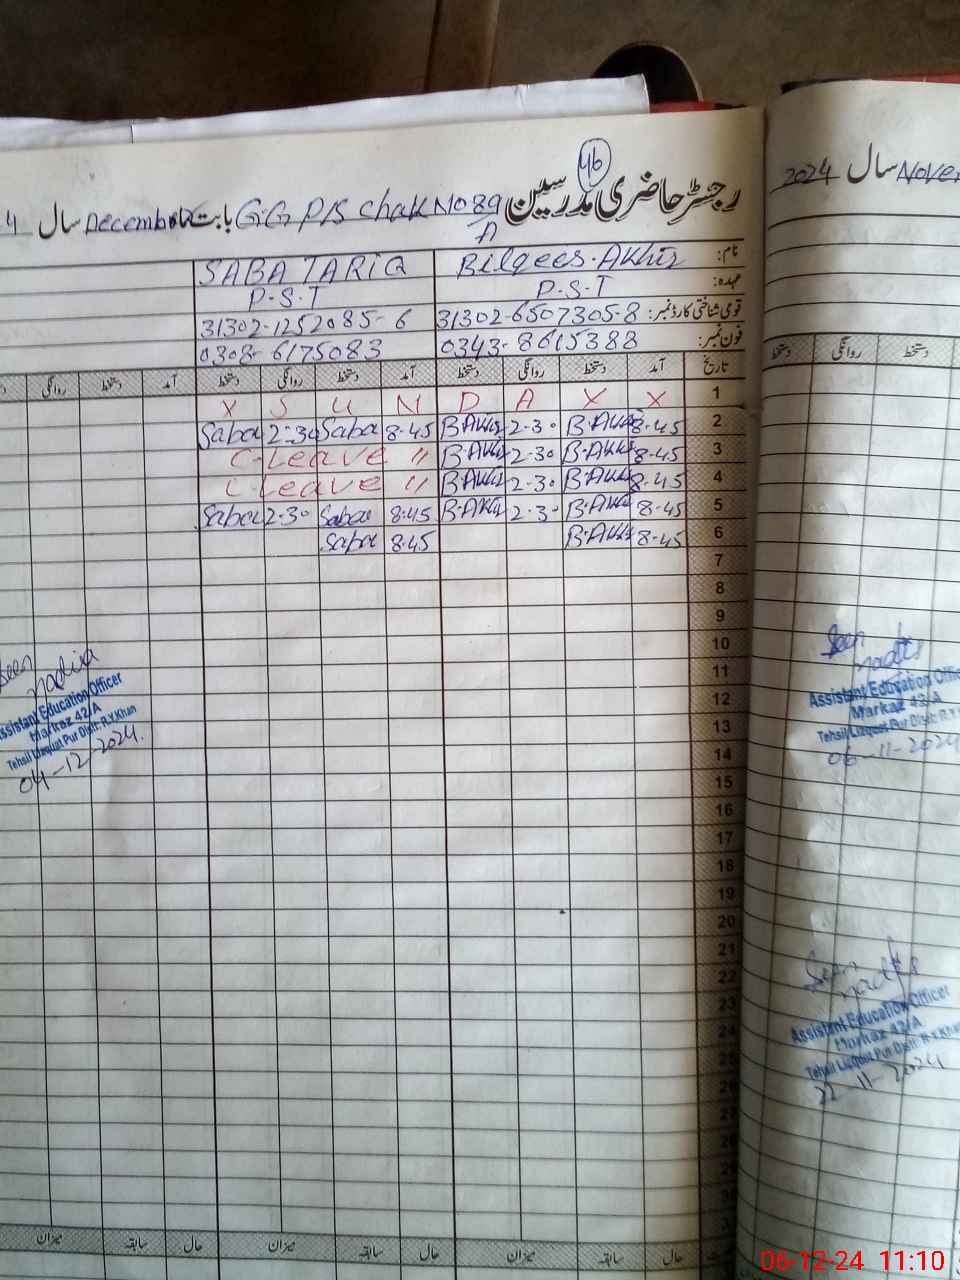 46
رجسٹر حاضری مدرسین G.G P/S Chak No 89/A بابت ماہ December سال 4
2024 سال Novem
نام: Bilqees Akhtr SABA TARIQ
عہدہ: P.S.T P.S.T
قومی شناختی کارڈ نمبر: 31302-6507305-8 31302-1252085-6
فون نمبر: 0343-8615388 0308-6175083
تاریخ آمد دستخط روانگی دستخط آمد دستخط روانگی دستخط آمد دستخط روانگی
دستخط روانگی دستخط
1 X S U N D A X X
2 8-45 B.Akhtr 2-30 B.Akhtr 8-45 Saba 2-30 Saba
3 8-45 B.Akhtr 2-30 B.Akhtr C-Leave "
4 8-45 B.Akhtr 2-30 B.Akhtr C-Leave "
5 8-45 B.Akhtr 2-30 B.Akhtr 8-45 Saba 2-30 Saba
6 8-45 B.Akhtr 8-45 Saba
7
8
9
10
11
12
13
14
15
16
17
18
19
20
21
22
23
24
25
26
27
28
29
30
Seen
Nadia
Assistant Education Officer
Markaz 42/A
Tehsil Liaquat Pur Distt: R.Y.Khan
04-12-2024.
Seen
Assistant Education Offic
Markaz 42/A
Tehsil Liaquat Pur Distt: R.Y
06-11-2024
Seen
Assistant Education Officer
Markaz 42/A
Tehsil Liaquat Pur Distt: R.Y.Khan
22-11-2024
حال سابقہ میزان حال سابقہ میزان حال سابقہ میزان
06-12-24 11:10